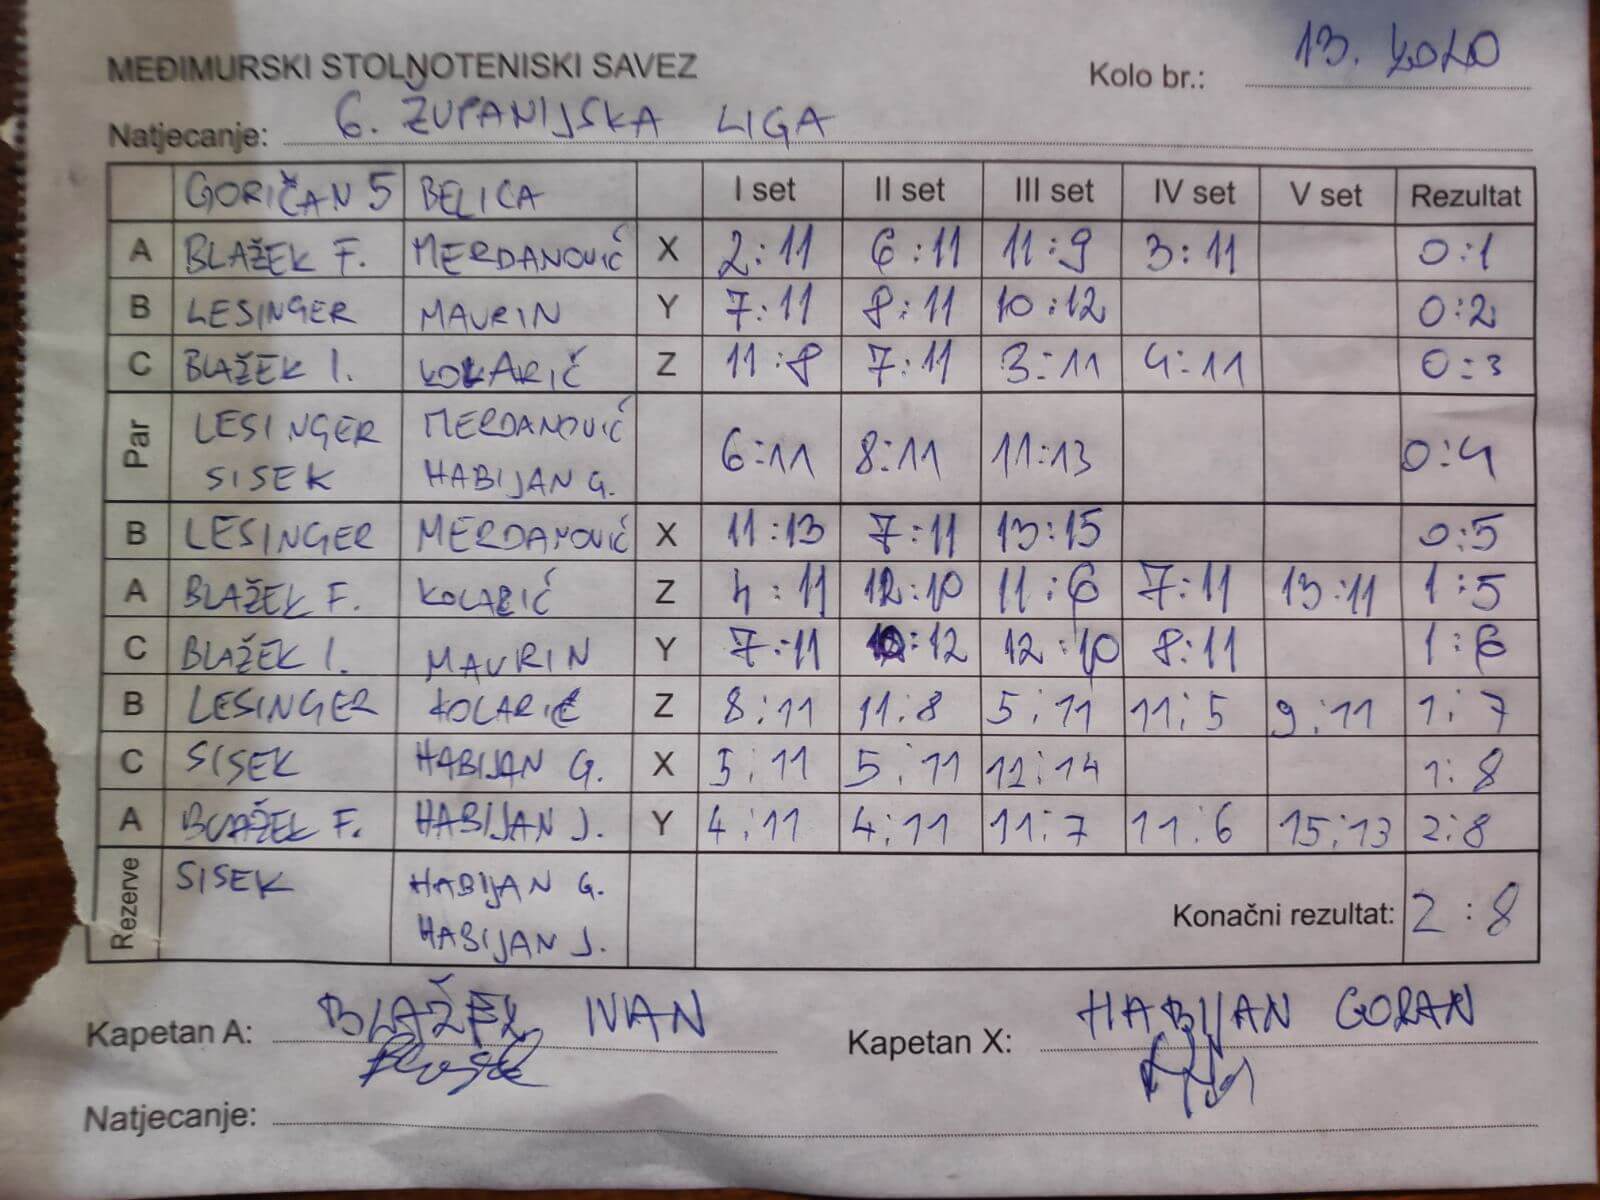 MEĐIMURSKI STOLNOTENISKI SAVEZ
Kolo br.: 13. KOLO
Natjecanje: 6. ŽUPANIJSKA LIGA
GORIČAN 5 BELICA I set II set III set IV set V set Rezultat
A BLAŽEK F. MERDANOVIĆ X 2:11 6:11 11:9 3:11 0:1
B LESINGER MAURIN Y 7:11 8:11 10:12 0:2
C BLAŽEK I. KOLARIĆ Z 11:8 7:11 3:11 4:11 0:3
Par LESINGER MERDANOVIĆ 6:11 8:11 11:13 0:4
SISEK HABIJAN G.
B LESINGER MERDANOVIĆ X 11:13 7:11 13:15 0:5
A BLAŽEK F. KOLARIĆ Z 4:11 12:10 11:6 7:11 13:11 1:5
C BLAŽEK I. MAURIN Y 7:11 10:12 12:10 8:11 1:6
B LESINGER KOLARIĆ Z 8:11 11:8 5:11 11:5 9:11 1:7
C SISEK HABIJAN G. X 5:11 5:11 12:14 1:8
A BLAŽEK F. HABIJAN J. Y 4:11 4:11 11:7 11:6 15:13 2:8
Rezerve SISEK HABIJAN G.
HABIJAN J.
Konačni rezultat: 2:8
Kapetan A: BLAŽEK IVAN
Kapetan X: HABIJAN GORAN
Natjecanje: